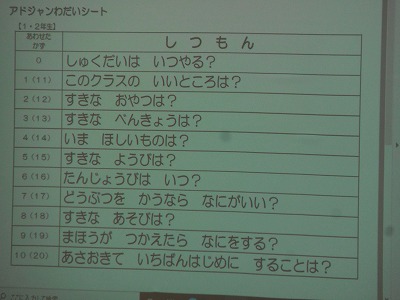 アドジャンわだいシート
【1・2年生】
あわせた かず しつもん
0 しゅくだいは いつやる？
1（11） このクラスの いいところは？
2（12） すきな おやつは？
3（13） すきな べんきょうは？
4（14） いま ほしいものは？
5（15） すきな ようびは？
6（16） たんじょうびは いつ？
7（17） どうぶつを かうなら なにがいい？
8（18） すきな あそびは？
9（19） まほうが つかえたら なにをする？
10（20） あさおきて いちばんはじめに することは？